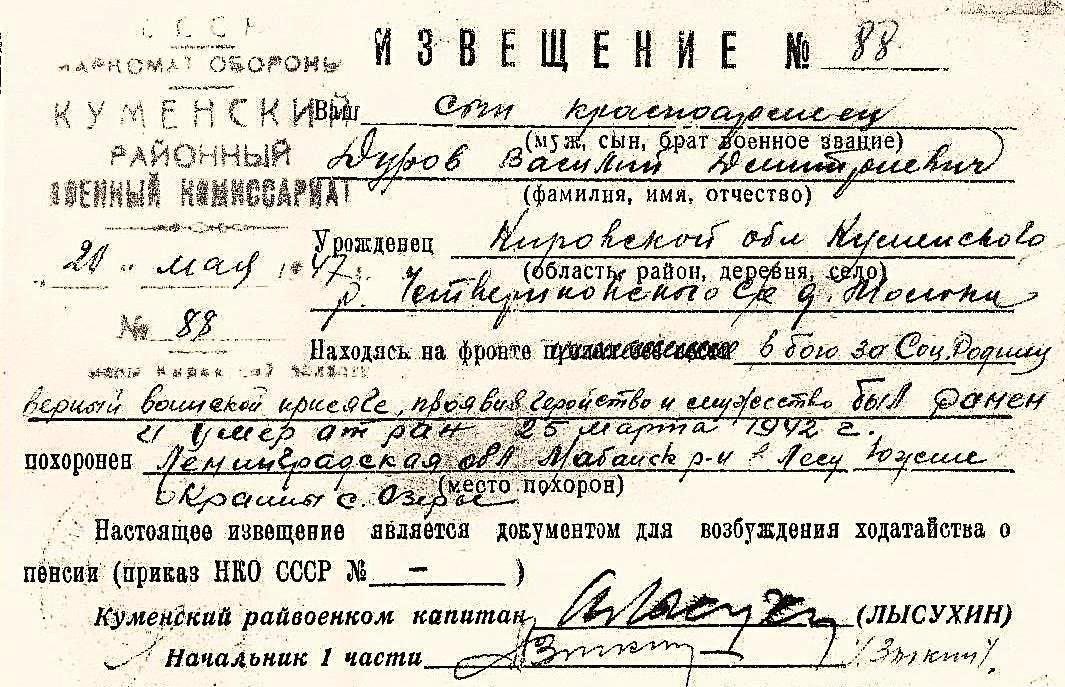 СССР
НАРКОМАТ ОБОРОНЫ
КУМЕНСКИЙ
РАЙОННЫЙ
ВОЕННЫЙ КОМИССАРИАТ
20 " мая 1947
№ 88
ИЗВЕЩЕНИЕ № 88
Ваш сын красноармеец
(муж, сын, брат военное звание)
Дуров Василий Дмитриевич
(фамилия, имя, отчество)
Урожденец Кировской обл Куменского
(область, район, деревня, село)
р. Четвериковского с/с д.
Находясь на фронте в бою за Соц. Родину
верный воинской присяге, проявив геройство и мужество был ранен
и умер от ран 25 марта 1942 г.
похоронен Ленинградская обл р-н в лесу Южнее
(место похорон)
окраины с. Озерье
Настоящее извещение является документом для возбуждения ходатайства о
пенсии (приказ НКО СССР № — )
Куменский райвоенком капитан (ЛЫСУХИН)
Начальник 1 части Зыкин (Зыкин)